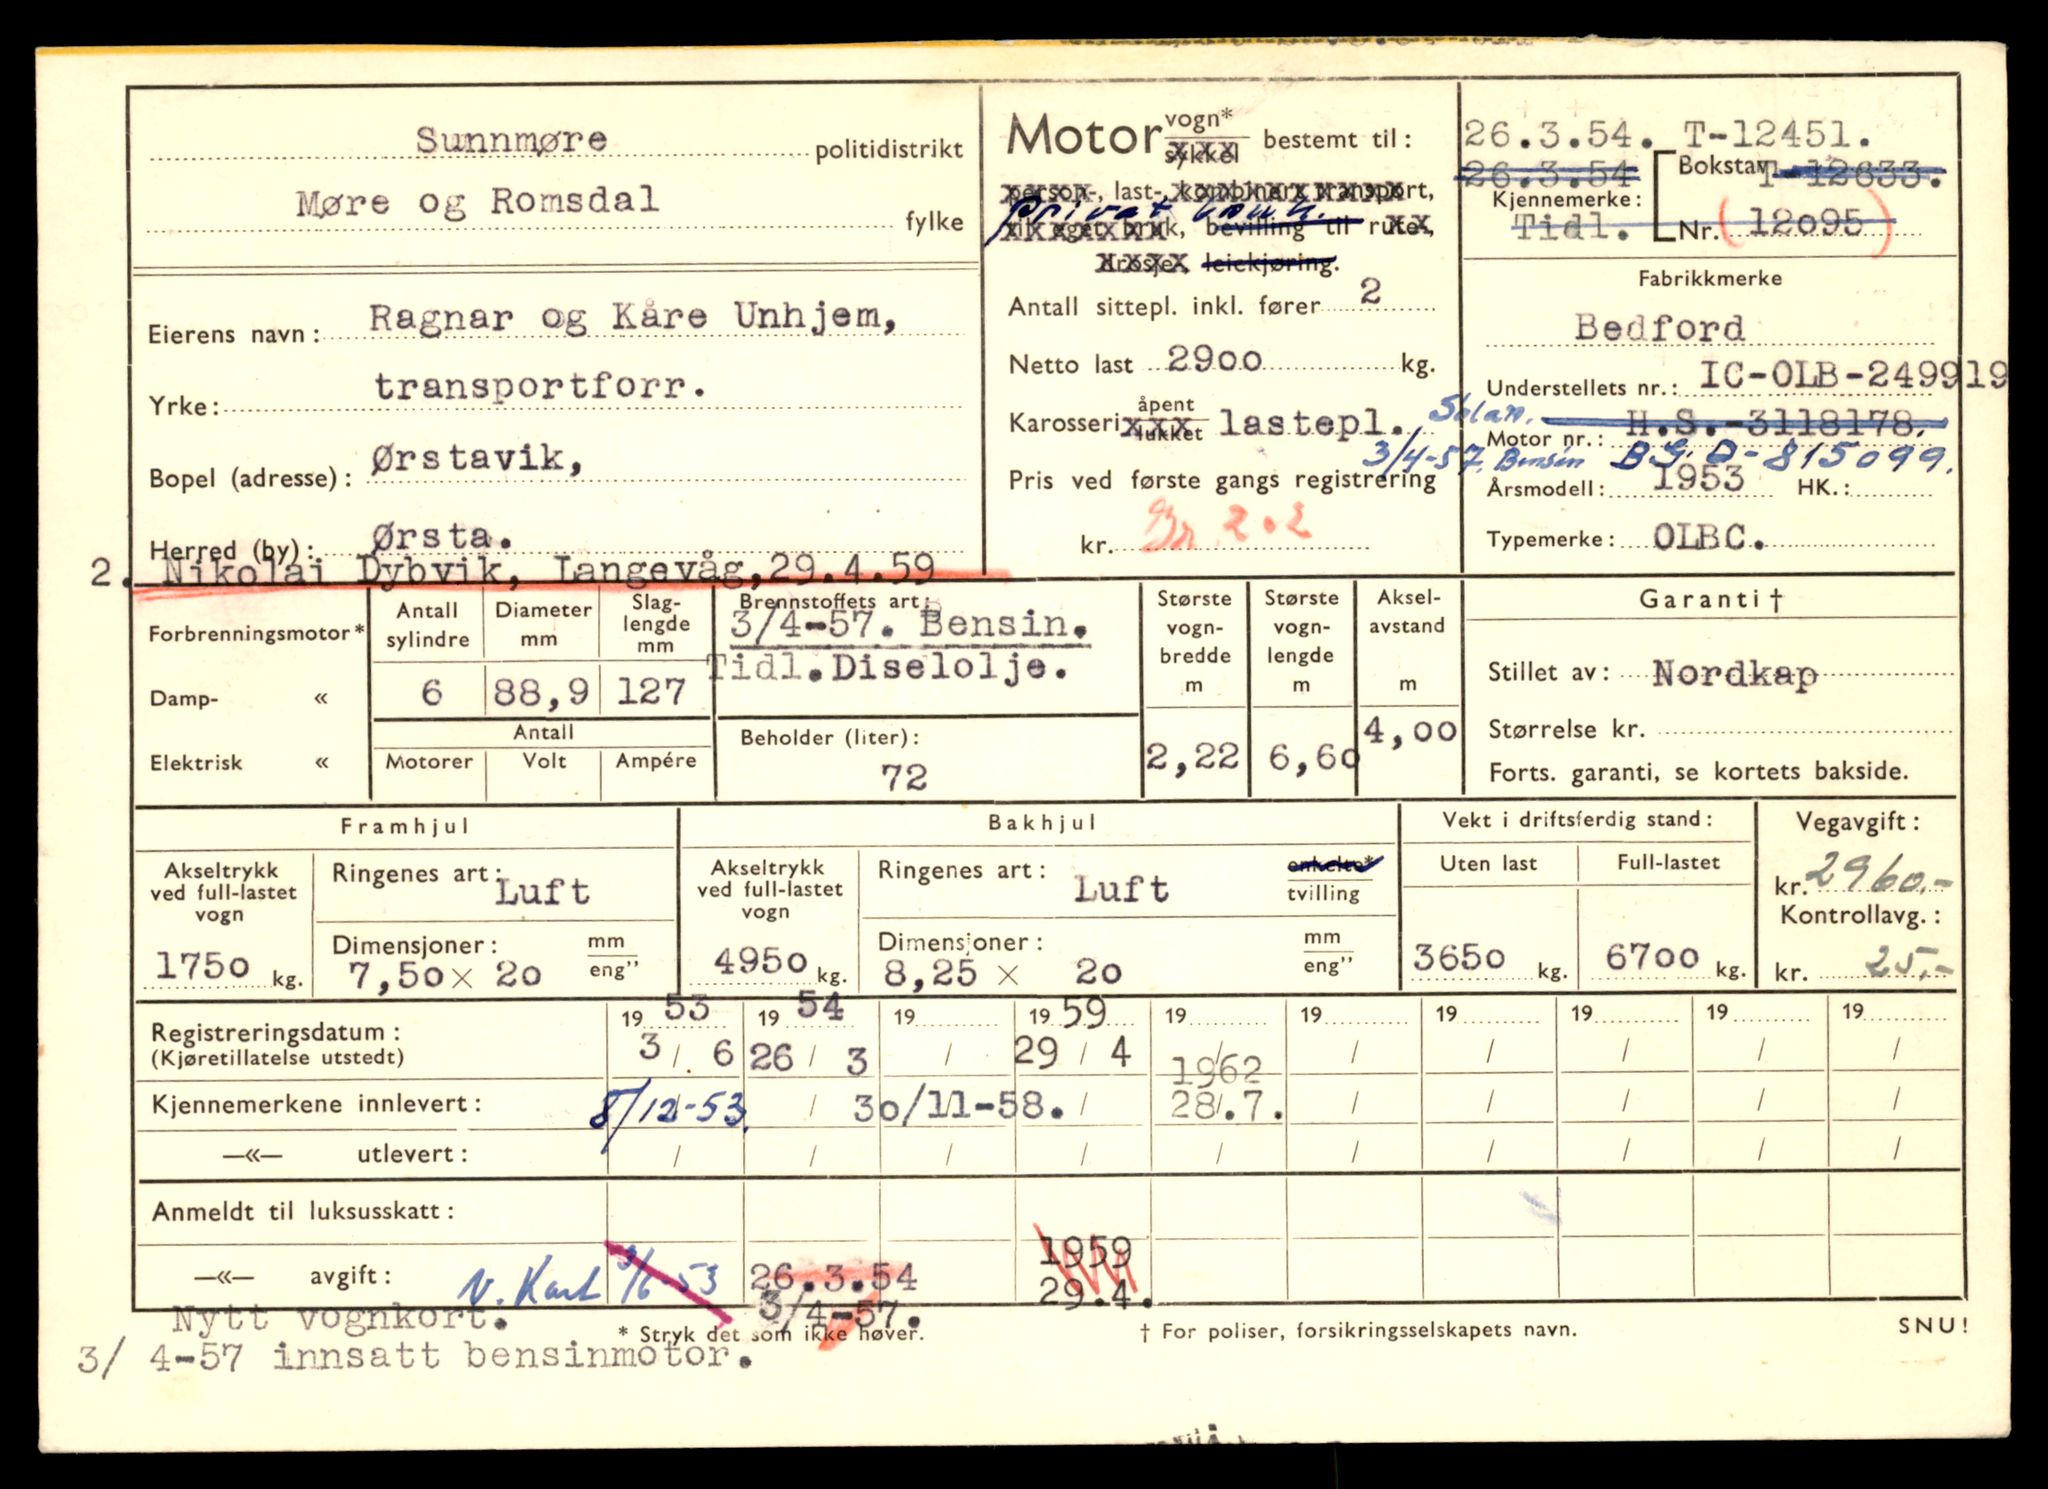 Sunnmøre politidistrikt
Møre og Romsdal fylke
Eierens navn: Ragnar og Kåre Unhjem,
Yrke: transportforr.
Bopel (adresse): Ørstavik,
Herred (by): Ørsta.
2. Nikolai Dybvik, Langevåg, 29.4.59
Motor vogn* sykkel bestemt til:
person-, last-, kombinert transport,
Privat
til eget bruk, bevilling til rute,
drosje, leiekjøring.
Antall sittepl. inkl. fører 2
Netto last 2900 kg.
Karosseri åpent lukket lastepl.
Pris ved første gangs registrering
kr. Gr. 2.2
26.3.54. T-12451.
26.3.54 Bokstav T-12633.
Kjennemerke:
Tidl. Nr. (12095)
Fabrikkmerke
Bedford
Understellets nr.: IC-OLB-249919
H.S.-3118178.
Motor nr.:
3/4-57. Bensin B.G.D-815099.
Årsmodell: 1953 HK.:
Typemerke: OLBC.
Forbrenningsmotor*
Damp- «
Elektrisk «
Antall sylindre 6
Diameter mm 88,9
Slaglengde mm 127
Antall
Motorer Volt Ampére
Brennstoffets art:
3/4-57. Bensin.
Tidl. Diselolje.
Beholder (liter):
72
Største vogn-bredde m 2,22
Største vogn-lengde m 6,60
Aksel-avstand m 4,00
Garanti †
Stillet av: Nordkap
Størrelse kr.
Forts. garanti, se kortets bakside.
Framhjul
Akseltrykk ved full-lastet vogn
1750 kg.
Ringenes art: Luft
Dimensjoner: mm eng''
7,50 × 20
Bakhjul
Akseltrykk ved full-lastet vogn
4950 kg.
Ringenes art: Luft enkelte* tvilling
Dimensjoner: mm eng''
8,25 × 20
Vekt i driftsferdig stand:
Uten last Full-lastet
3650 kg. 6700 kg.
Vegavgift:
kr. 2960.-
Kontrollavg.:
kr. 25.-
1953 1954 19 1959 19 19 19 19 19 19
Registreringsdatum:
(Kjøretillatelse utstedt)
3/6 26/3 / 29/4 / / / / / /
1962
Kjennemerkene innlevert: 8/12-53. / 30/11-58. / 28.7. / / / / /
—«— utlevert: / / / / / / / / / /
Anmeldt til luksusskatt:
1959
—«— avgift: N. Kart 3/6-53 26.3.54 29.4.
Nytt vognkort. 3/4-57.
* Stryk det som ikke høver. † For poliser, forsikringsselskapets navn. SNU!
3/ 4-57 innsatt bensinmotor.